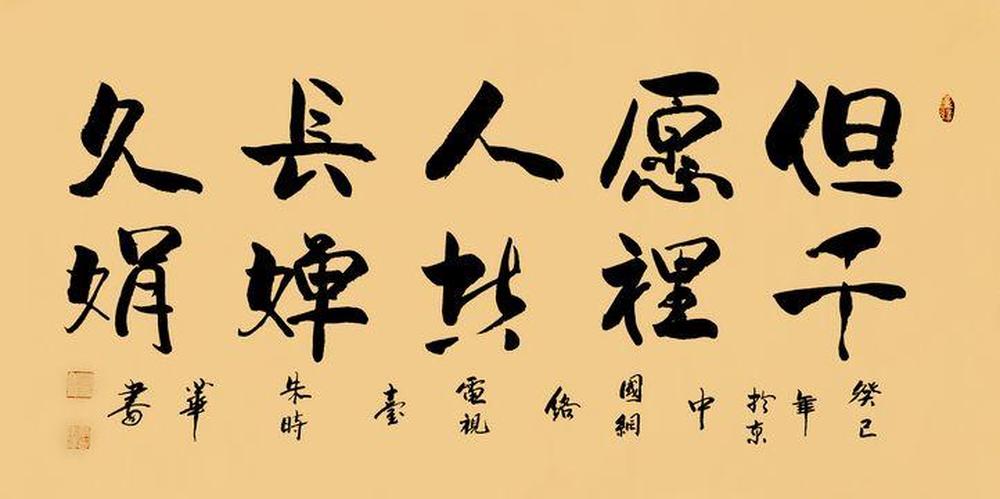 但愿人長久
千裡共嬋娟
癸巳年於京中國網絡電視臺朱時華書